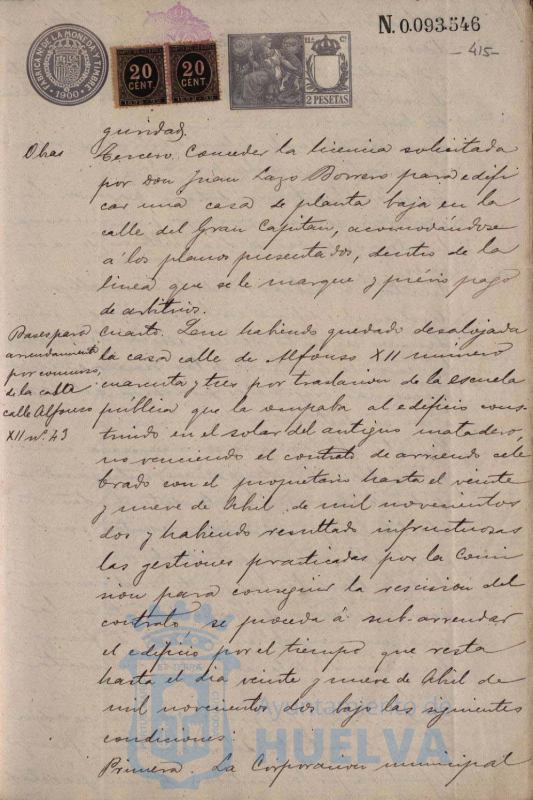 N. 0.093.546
-415-
FÁBRICA NL. DE LA MONEDA Y TIMBRE
1900
20
CENT.
20
CENT.
11ª C.
2 PESETAS
guridad.
Obras
Tercero. Conceder la licencia solicitada
por don Juan Lazo Borrero para edifi
car una casa de planta baja en la
calle del Gran Capitan, acomodándose
á los planos presentados, dentro de la
linea que se le marque y prévio pago
de arbitrios.
Bases para
arrendamiento
por concurso,
de la casa
calle Alfonso
XII nº 43
Cuarto. Que habiendo quedado desalojada
la casa calle de Alfonso XII número
cuarenta y tres por traslacion de la escuela
pública que la ocupaba al edificio cons-
truido en el solar del antiguo matadero,
no venciendo el contrato de arriendo cele
brado con el propietario hasta el veinte
y nueve de Abril de mil novecientos
dos y habiendo resultado infructuosas
las gestiones practicadas por la Comi
sion para conseguir la rescision del
contrato se proceda á sub-arrendar
el edificio por el tiempo que resta
hasta el dia veinte y nueve de Abril de
mil novecientos dos bajo las siguientes
condiciones:
Primera. La Corporacion municipal
Ayuntamiento de
HUELVA